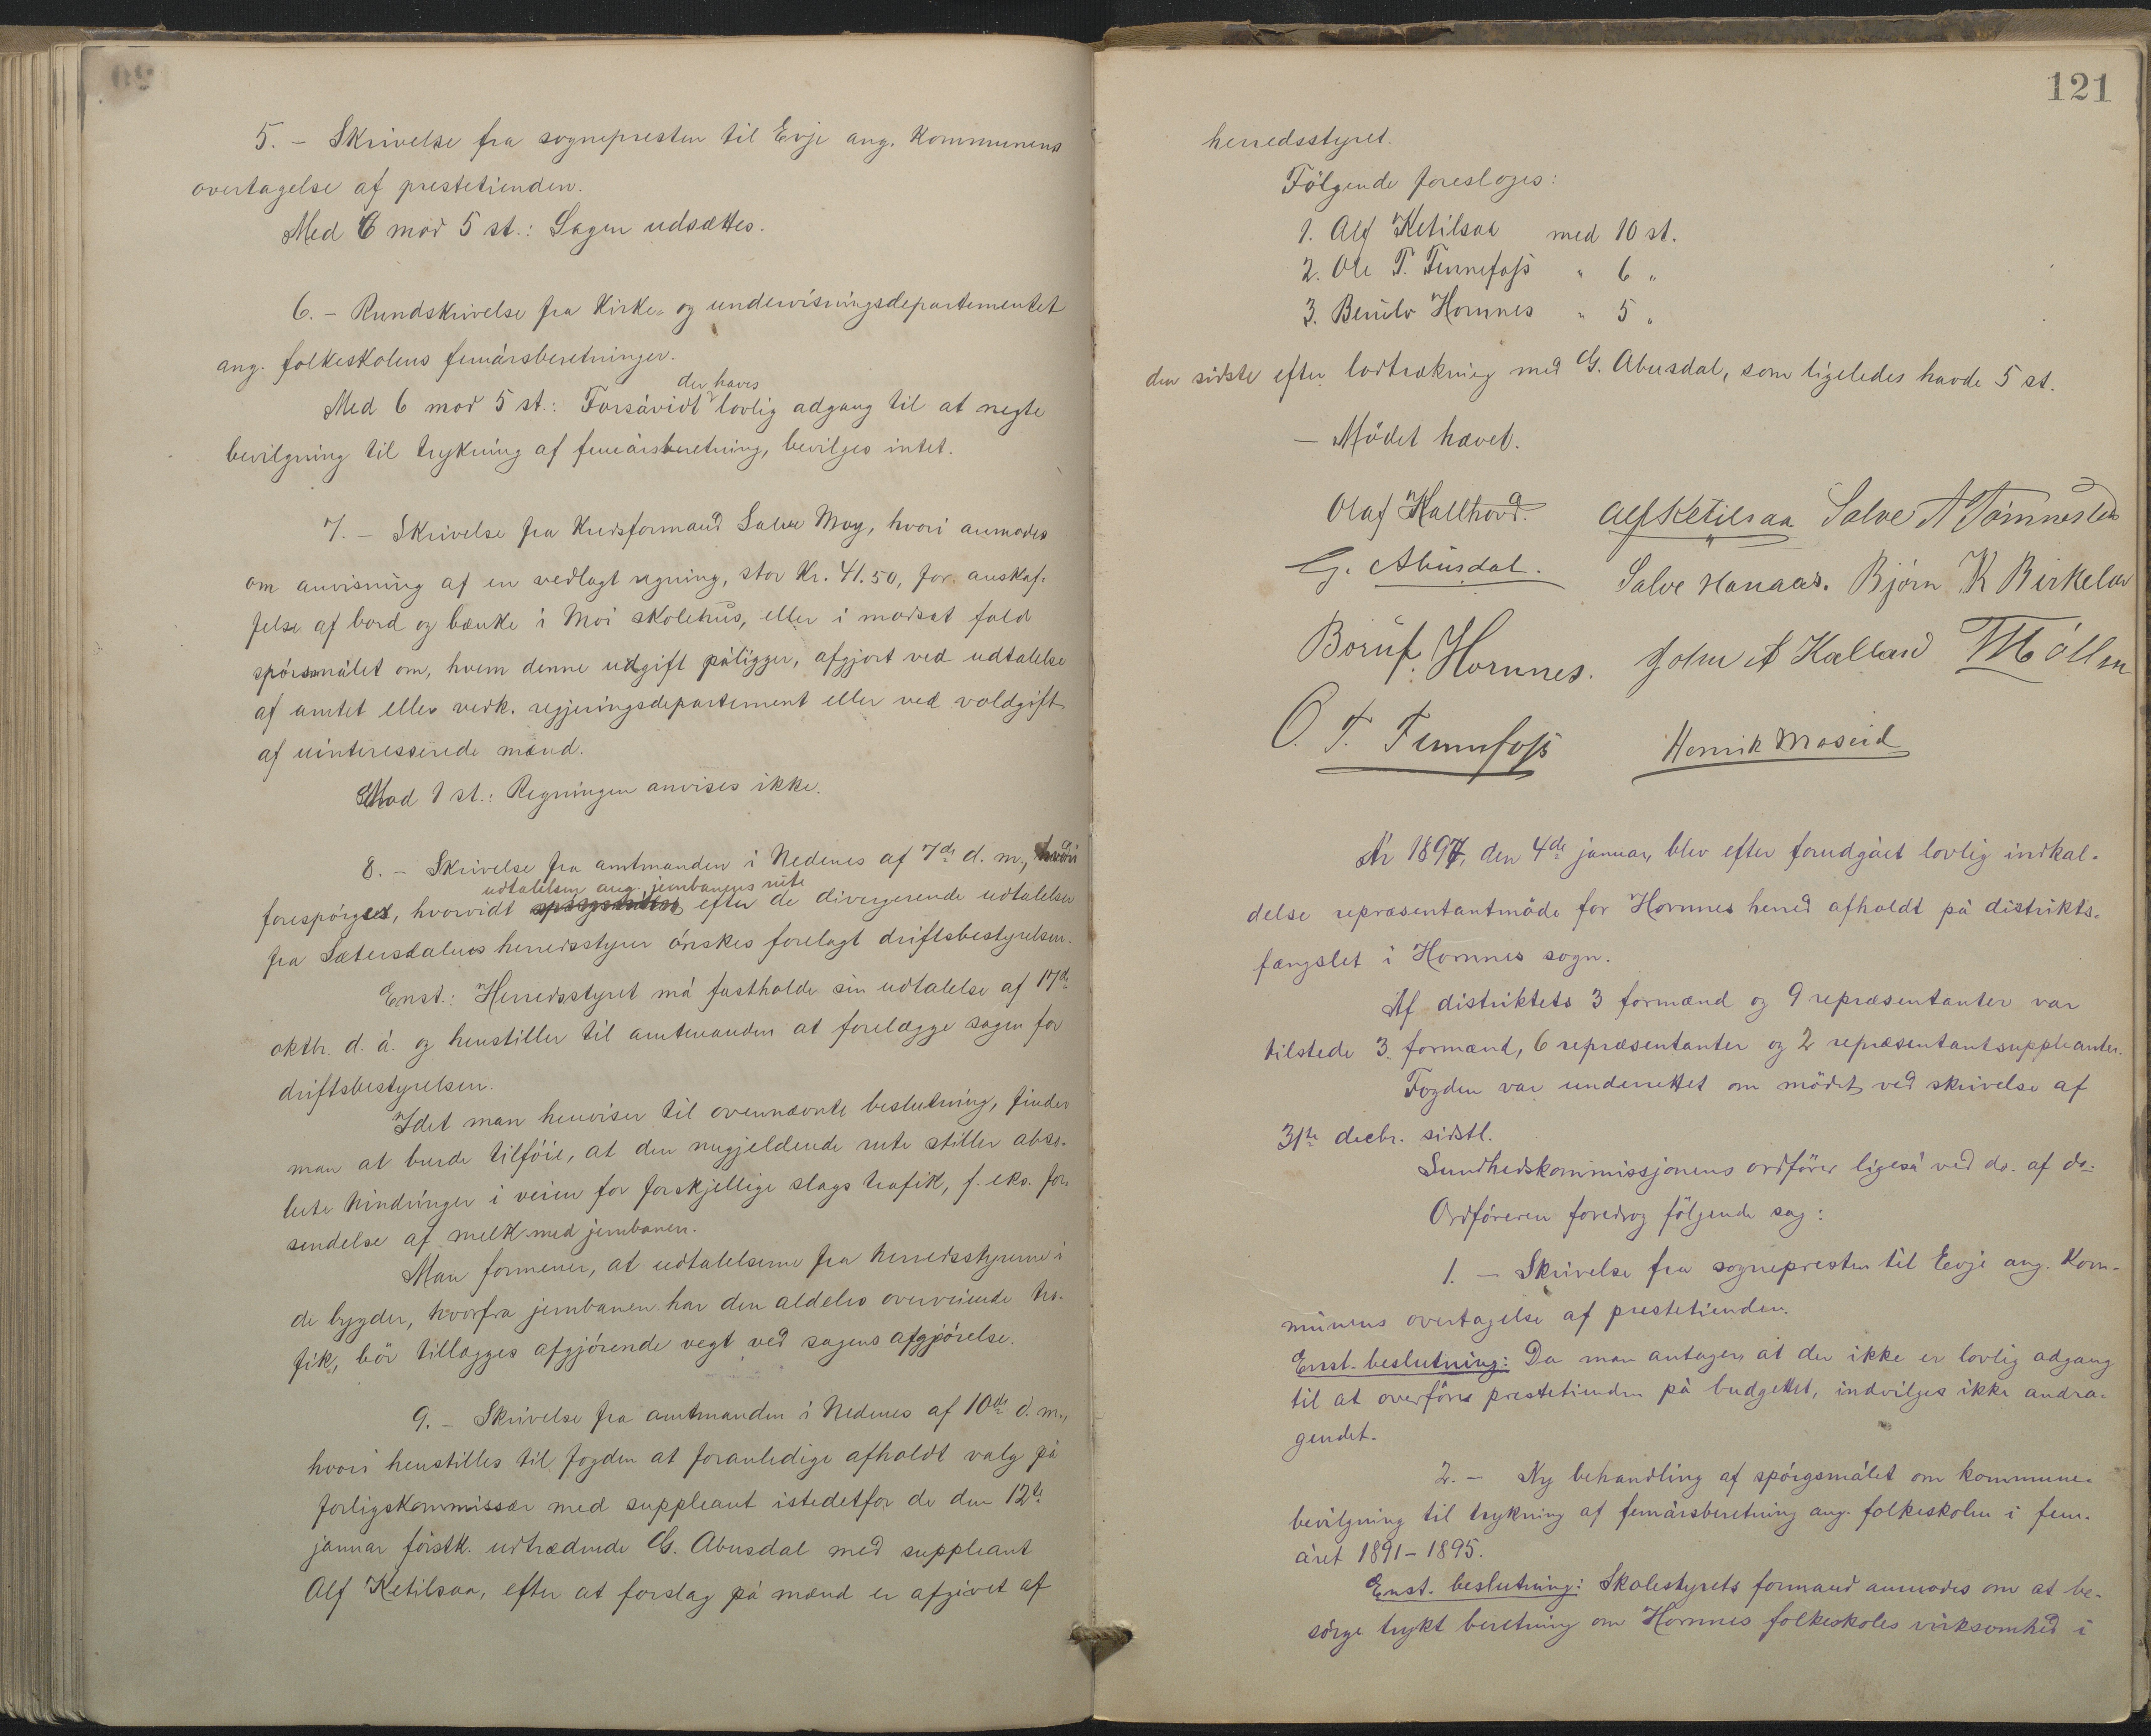 5. – Skrivelse fra sognepresten til Evje ang. Kommunens
overtagelse af prestetienden.
Med 6 mod 5 st.: Sagen udsættes.
6. – Rundskrivelse fra Kirke- og undervisningsdepartementet
ang. folkeskolens femårsberetninger.
der haves
Med 6 mod 5 st.: Forsåvidt lovlig adgang til at negte
bevilgning til trykning af femårsberetning, bevilges intet.
7. – Skrivelse fra Kredsformand Salve Moy, hvori anmodes
om anvisning af en vedlagt regning, stor Kr. 41.50, for anskaf-
felse af bord og bænke i Moi skolehus, eller i modsat fald
spørsmålet om, hvem denne udgift påligger, afgjort ved udtalelse
af amtet eller vedk. regjeringsdepartement eller ved voldgift
af uinteresserede mænd.
Mod 1 st.: Regningen anvises ikke.
8. – Skrivelse fra amtmanden i Nedenes af 7de d. m., hvori
udtalelsen ang. jernbanens rute
forespörges, hvorvidt efter de divergerende udtalelser
fra Sætersdalens herredsstyrer önskes forelagt driftsbestyrelsen.
Enst.: Herredsstyret må fastholde sin udtalelse af 17de
oktbr. d. å. og henstiller til amtmanden at forelægge sagen for
driftsbestyrelsen.
Idet man henviser til ovennævnte beslutning, finder
man at burde tilföie, at den nugjeldende rute stiller abso-
lute hindringer i veien for forskjellige slags trafik, f. eks. for-
sendelse af melk med jernbanen.
Man formener, at udtalelserne fra herredsstyrerne i
de bygder, hvorfra jernbanen har den aldeles overveiende tra-
fik, bör tillægges afgjörende vegt ved sagens afgjörelse.
9. – Skrivelse fra amtmanden i Nedenes af 10de d. m.,
hvori henstilles til fogden at foranledige afholdt valg på
forligskommissær med suppleant istedetfor de den 12te
januar förstk. udtrædende G. Abusdal med suppleant
Alf Ketilsaa, efter at forslag på mænd er afgivet af
121
herredsstyret.
Fölgende foresloges:
1. Alf Ketilsaa med 10 st.
2. Ole T. Fennefoss " 6 "
3. Beruls Hornnes " 5 "
den sidste efter lodtrækning med G. Abusdal, som ligeledes havde 5 st.
– Mödet hævet.
Olaf Kallhovd. Alf Ketilsaa Salve A Tömmesland
G. Abusdal. Salve Hanaas. Björn K Birkeland
Beruls Hornnes. John A Kalland T Möllen
O. T. Fennefoss Henrik Moseid
År 1897, den 4de januar, blev efter forudgået lovlig indkal-
delse repræsentantmöde for Hornnes herred afholdt på distrikts-
fængslet i Hornnes sogn.
Af distriktets 3 formænd og 9 repræsentanter var
tilstede 3 formænd, 6 repræsentanter og 2 repræsentantsuppleanter.
Fogden var underrettet om mödet ved skrivelse af
31te decbr. sidstl.
Sundhedskommissjonens ordförer ligeså ved do. af do.
Ordföreren foredrog fölgende sag:
1. – Skrivelse fra sognepresten til Evje ang. Kom-
munens overtagelse af prestetienden.
Enst. beslutning: Da man antager, at der ikke er lovlig adgang
til at overföre prestetienden på budgettet, indvilges ikke andra-
gendet.
2. – Ny behandling af spörgsmålet om kommune-
bevilgning til trykning af femårsberetning ang. folkeskolen i fem-
året 1891–1895.
Enst. beslutning: Skolestyrets formand anmodes om at be-
sörge trykt beretning om Hornnes folkeskoles virksomhed i